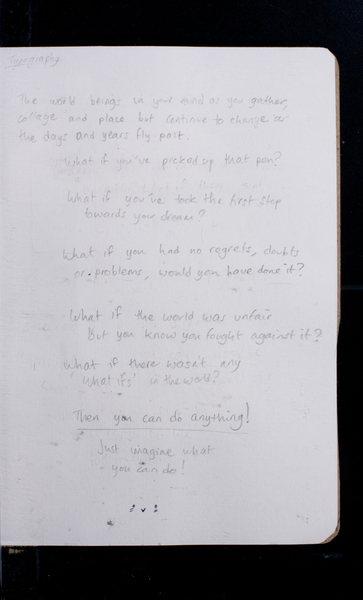 Typography.
The world beings in your mind as you gather,
collage and place but continue to change as
the days and years fly past.
What if you've picked up that pen?
What if you've took the first step
towards your dream?
What if you had no regrets, doubts
or problems, would you have done it?
What if the world was unfair
But you know you fought against it?
What if there wasn't any
'What ifs' in the world?
Then you can do anything!
Just imagine what
you can do!